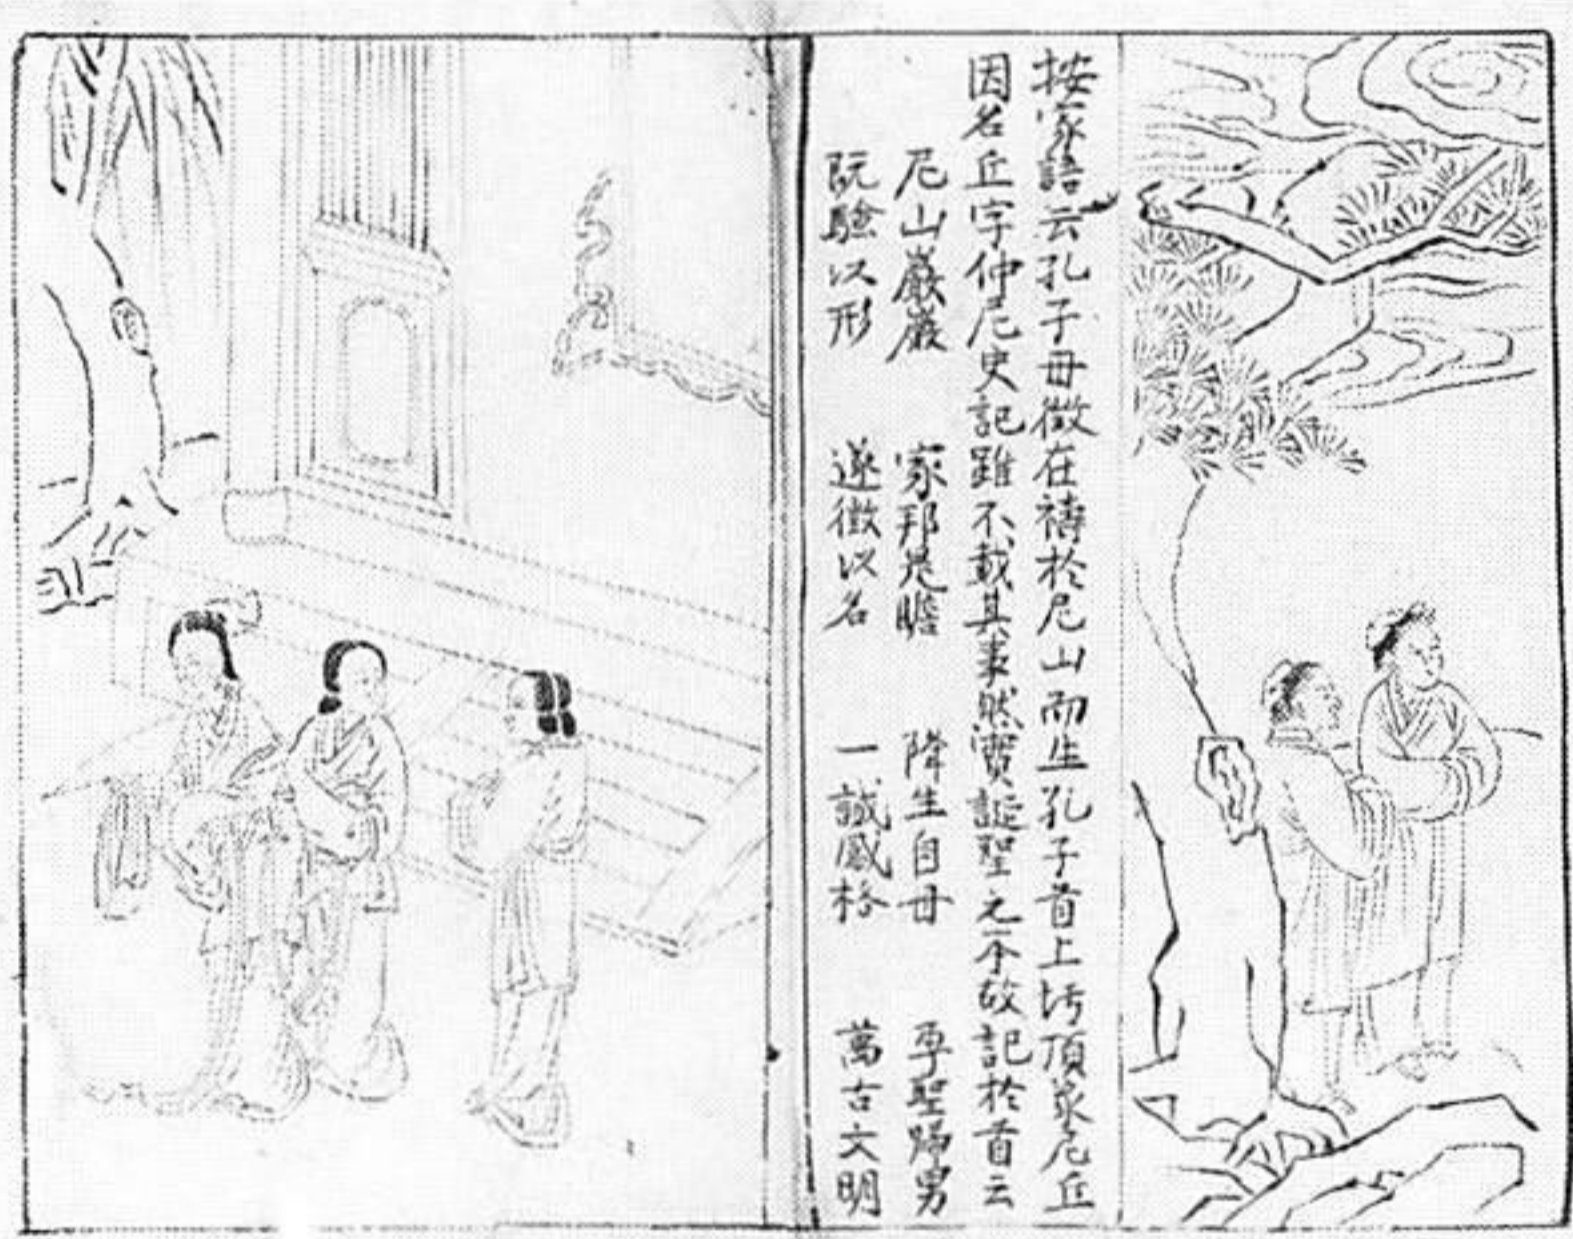 按家語云孔子母徵在禱於尼山而生孔子首上圬頂象尼丘
因名丘字仲尼史記雖不載其事然實誕聖之本故記於首云
尼山巖巖 家邦是瞻 降生自母 孕聖歸男
阮驗以形 遂徵以名 一誠感格 萬古文明